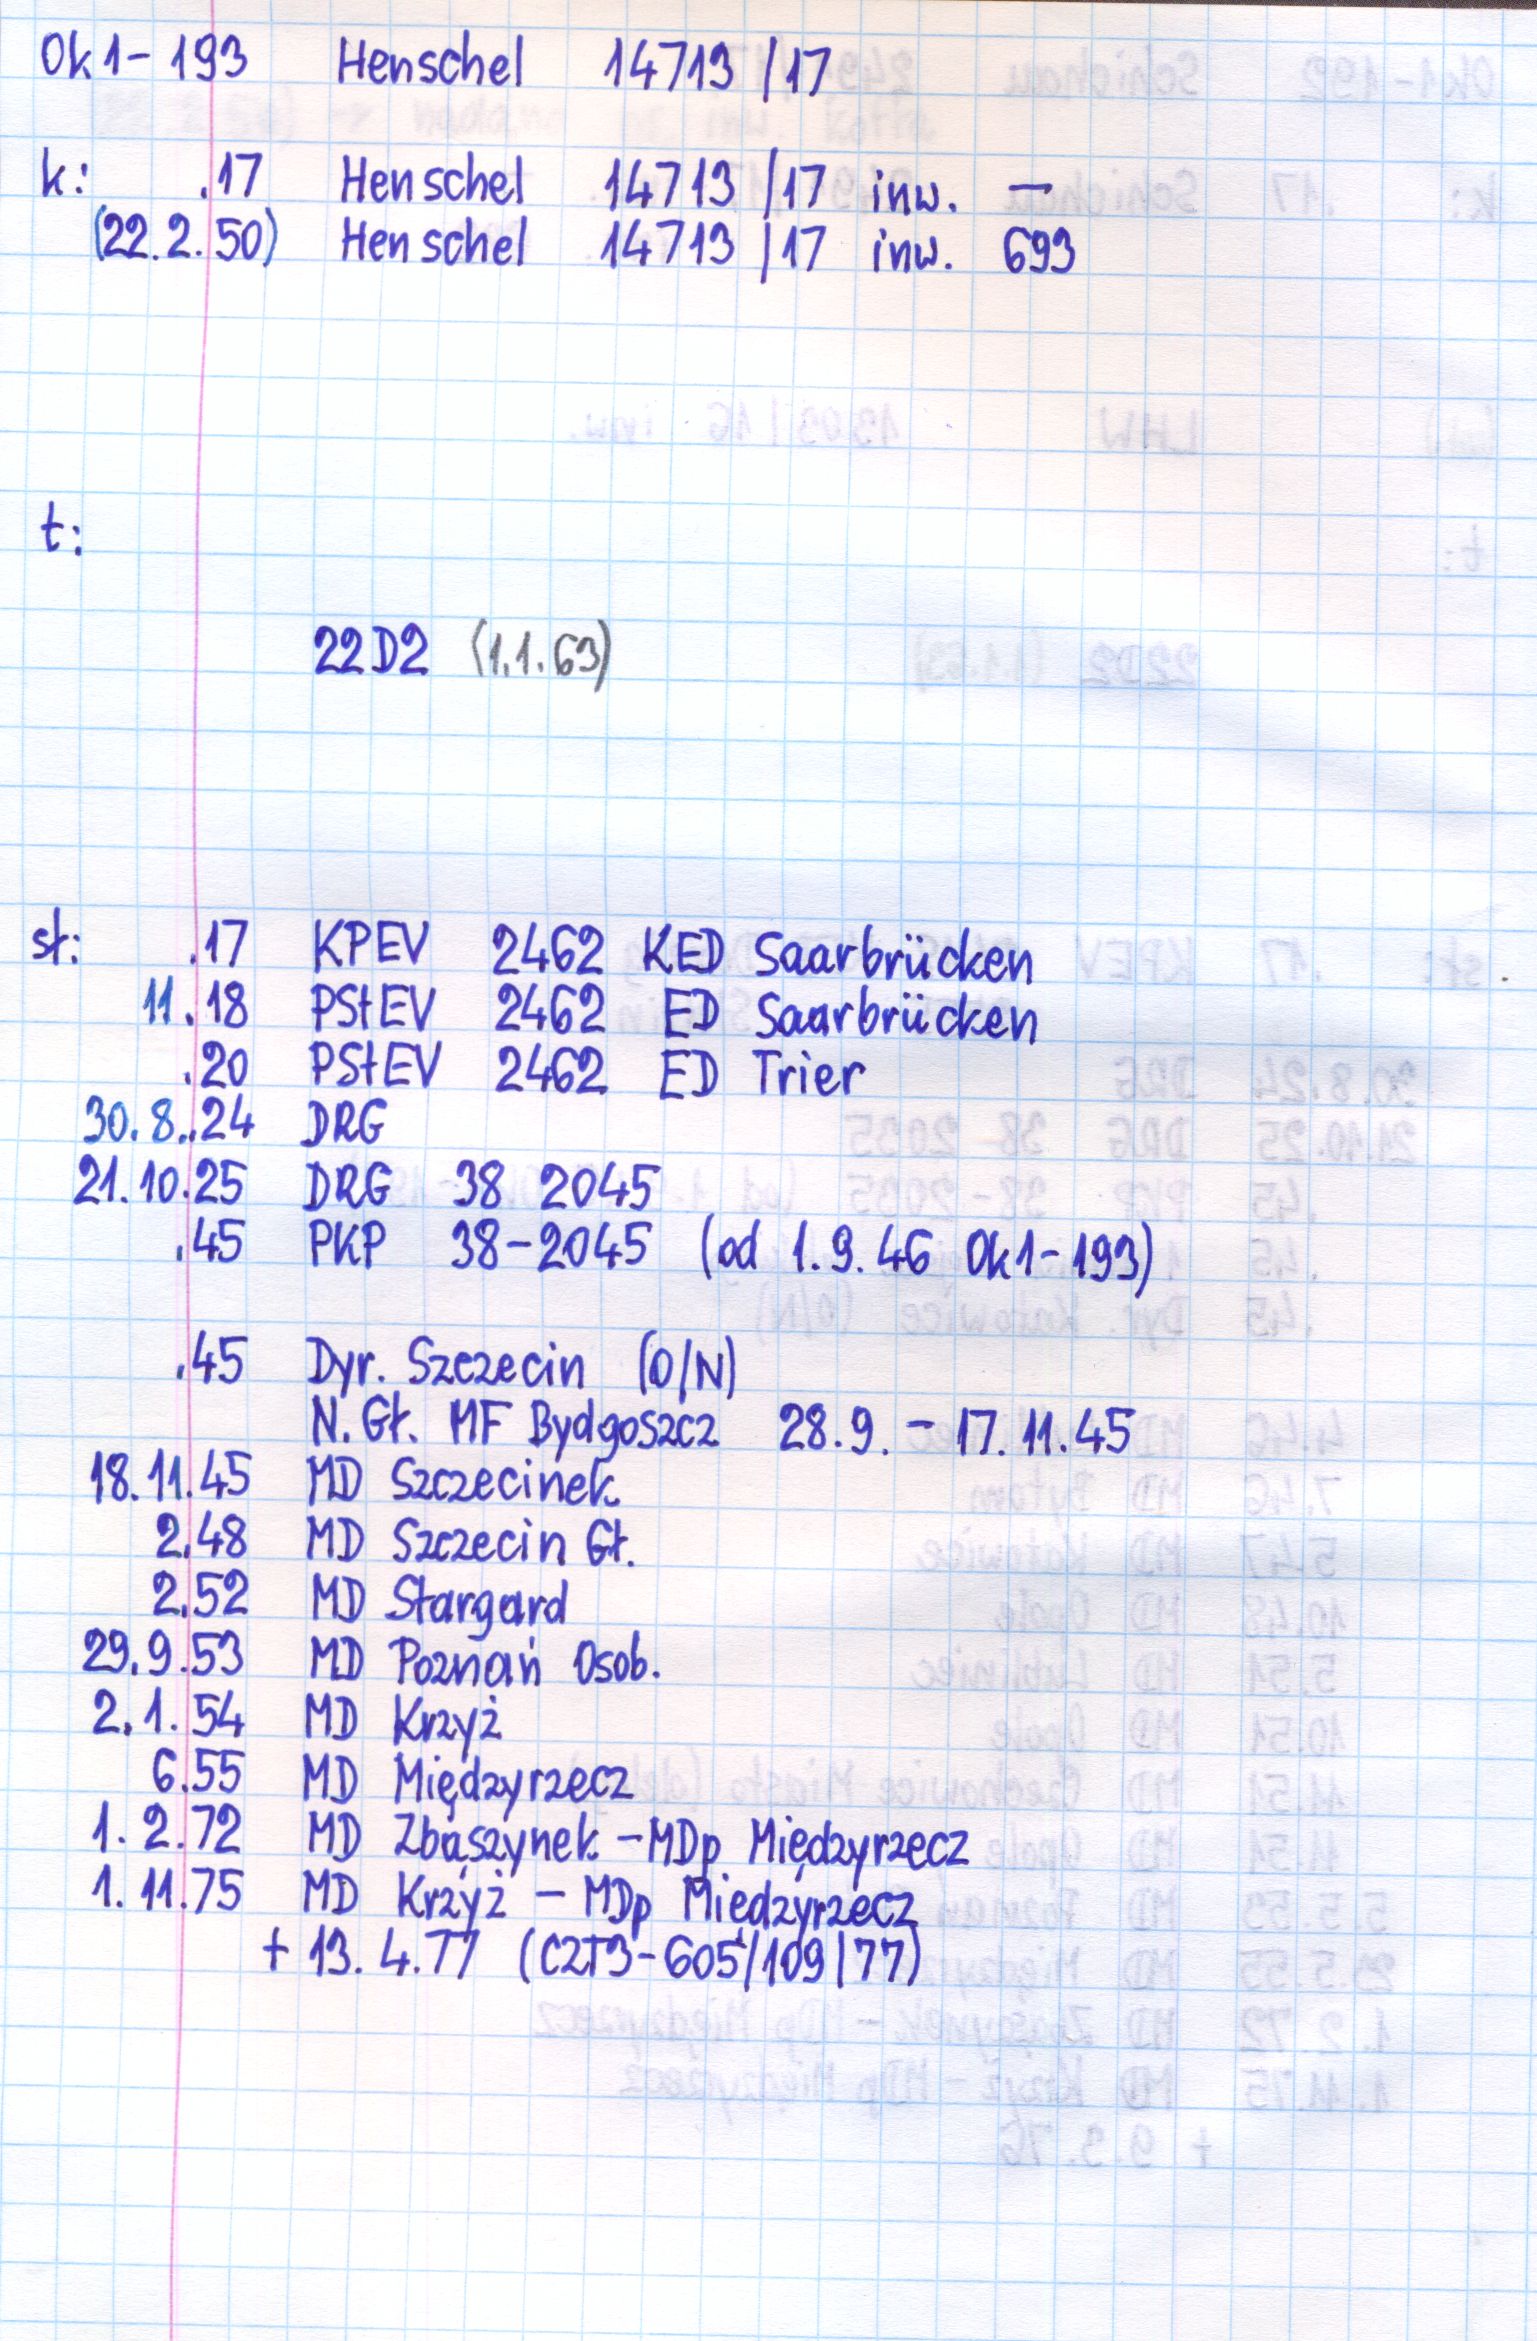 Ok1-193 Henschel 14713/17
k: .17 Henschel 14713/17 inw. —
(22.2.50) Henschel 14713/17 inw. 693
t:
22D2 (1.1.63)
sł: .17 KPEV 2462 KED Saarbrücken
11.18 PStEV 2462 ED Saarbrücken
.20 PStEV 2462 ED Trier
30.8..24 DRG
21.10.25 DRG 38 2045
.45 PKP 38-2045 (od 1.9.46 Ok1-193)
.45 Dyr. Szczecin (O/N)
N. Gł. MF Bydgoszcz 28.9. - 17.11.45
18.11.45 MD Szczecinek
2.48 MD Szczecin Gł.
2.52 MD Stargard
29.9.53 MD Poznań Osob.
2.1.54 MD Krzyż
6.55 MD Międzyrzecz
1.2.72 MD Zbąszynek - MDp Międzyrzecz
1.11.75 MD Krzyż - MDp Międzyrzecz
+ 13.4.77 (CZT3-605/109/77)